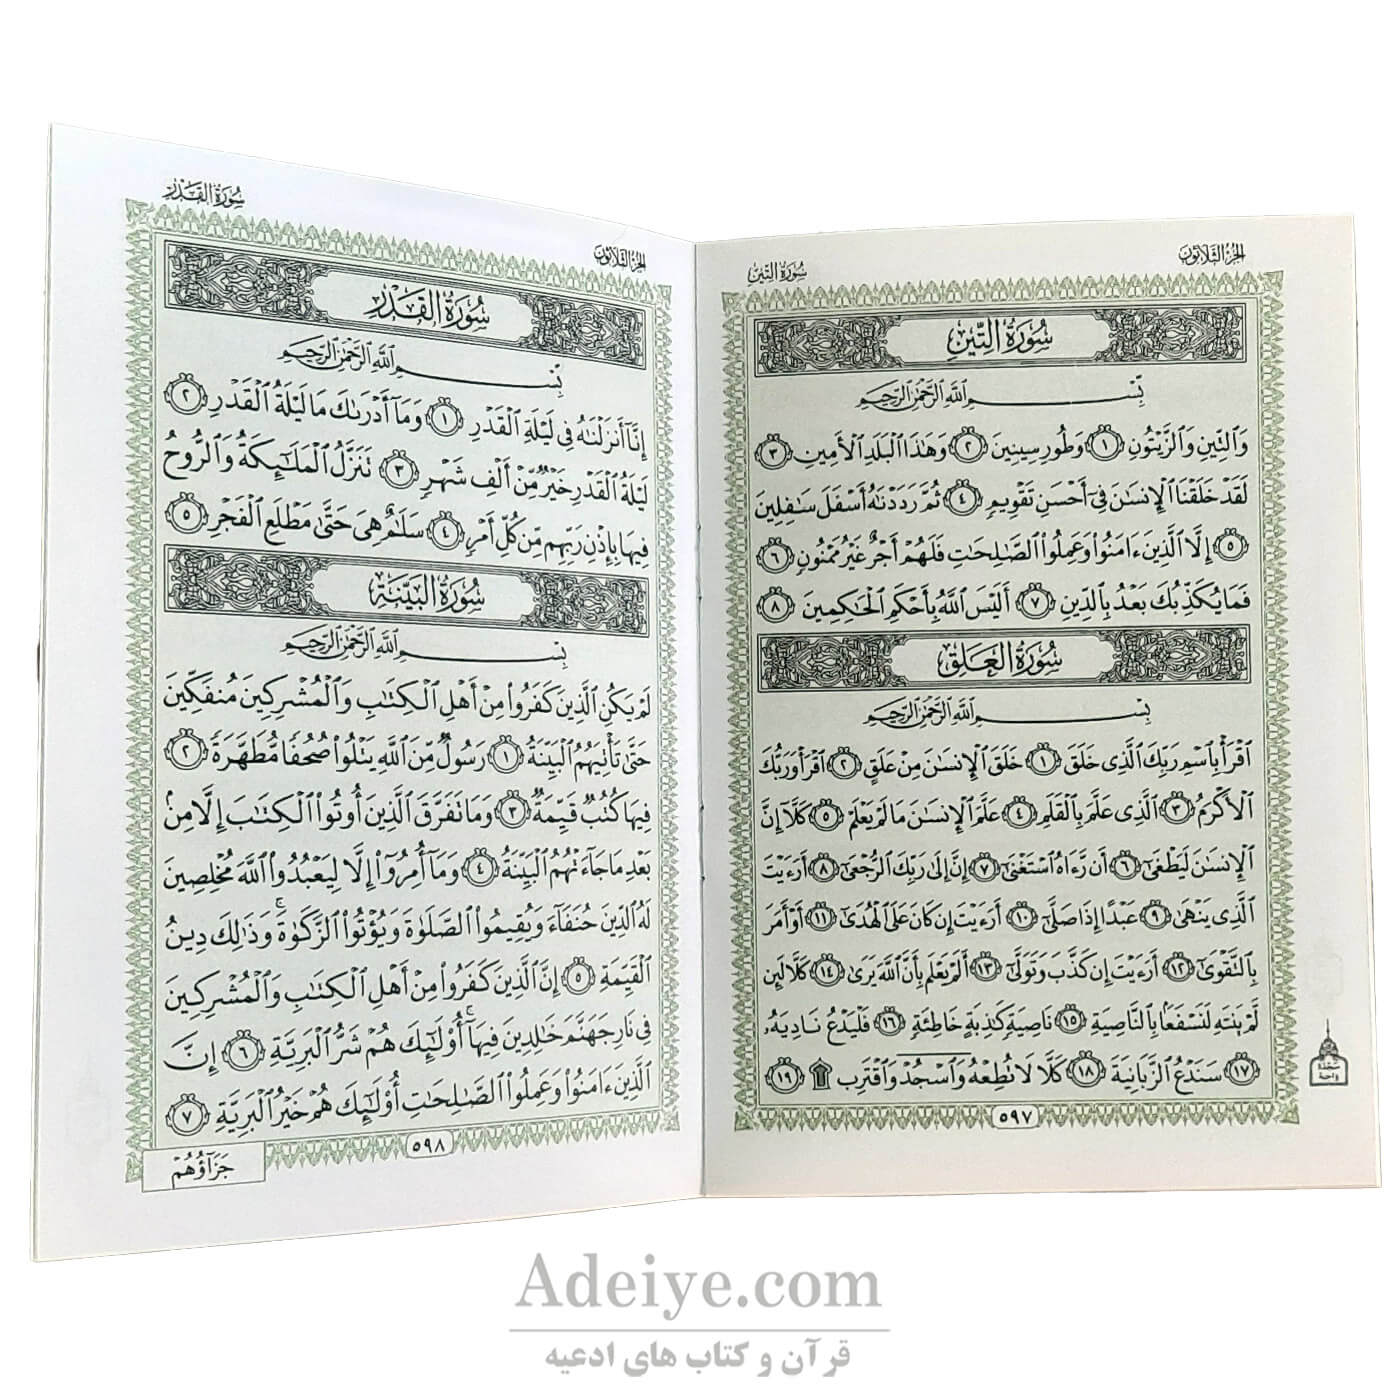 الجزء الثلاثون
سورة التين
سُورَةُ التِّينِ
بِسْمِ ٱللَّهِ ٱلرَّحْمَٰنِ ٱلرَّحِيمِ
وَٱلتِّينِ وَٱلزَّيْتُونِ ١ وَطُورِ سِينِينَ ٢ وَهَٰذَا ٱلْبَلَدِ ٱلْأَمِينِ ٣
لَقَدْ خَلَقْنَا ٱلْإِنسَٰنَ فِىٓ أَحْسَنِ تَقْوِيمٍ ٤ ثُمَّ رَدَدْنَٰهُ أَسْفَلَ سَٰفِلِينَ
٥ إِلَّا ٱلَّذِينَ ءَامَنُوا۟ وَعَمِلُوا۟ ٱلصَّٰلِحَٰتِ فَلَهُمْ أَجْرٌ غَيْرُ مَمْنُونٍ ٦
فَمَا يُكَذِّبُكَ بَعْدُ بِٱلدِّينِ ٧ أَلَيْسَ ٱللَّهُ بِأَحْكَمِ ٱلْحَٰكِمِينَ ٨
سُورَةُ العَلَقِ
بِسْمِ ٱللَّهِ ٱلرَّحْمَٰنِ ٱلرَّحِيمِ
ٱقْرَأْ بِٱسْمِ رَبِّكَ ٱلَّذِى خَلَقَ ١ خَلَقَ ٱلْإِنسَٰنَ مِنْ عَلَقٍ ٢ ٱقْرَأْ وَرَبُّكَ
ٱلْأَكْرَمُ ٣ ٱلَّذِى عَلَّمَ بِٱلْقَلَمِ ٤ عَلَّمَ ٱلْإِنسَٰنَ مَا لَمْ يَعْلَمْ ٥ كَلَّآ إِنَّ
ٱلْإِنسَٰنَ لَيَطْغَىٰٓ ٦ أَن رَّءَاهُ ٱسْتَغْنَىٰٓ ٧ إِنَّ إِلَىٰ رَبِّكَ ٱلرُّجْعَىٰٓ ٨ أَرَءَيْتَ
ٱلَّذِى يَنْهَىٰ ٩ عَبْدًا إِذَا صَلَّىٰٓ ١٠ أَرَءَيْتَ إِن كَانَ عَلَى ٱلْهُدَىٰٓ ١١ أَوْ أَمَرَ
بِٱلتَّقْوَىٰٓ ١٢ أَرَءَيْتَ إِن كَذَّبَ وَتَوَلَّىٰٓ ١٣ أَلَمْ يَعْلَم بِأَنَّ ٱللَّهَ يَرَىٰ ١٤ كَلَّا لَئِن
لَّمْ يَنتَهِ لَنَسْفَعًۢا بِٱلنَّاصِيَةِ ١٥ نَاصِيَةٍ كَٰذِبَةٍ خَاطِئَةٍ ١٦ فَلْيَدْعُ نَادِيَهُۥ
١٧ سَنَدْعُ ٱلزَّبَانِيَةَ ١٨ كَلَّا لَا تُطِعْهُ وَٱسْجُدْ وَٱقْتَرِب ۩ ١٩
سجدة
واجبة
٥٩٧
الجزء الثلاثون
سورة القدر
سُورَةُ القَدْرِ
بِسْمِ ٱللَّهِ ٱلرَّحْمَٰنِ ٱلرَّحِيمِ
إِنَّآ أَنزَلْنَٰهُ فِى لَيْلَةِ ٱلْقَدْرِ ١ وَمَآ أَدْرَىٰكَ مَا لَيْلَةُ ٱلْقَدْرِ ٢
لَيْلَةُ ٱلْقَدْرِ خَيْرٌ مِّنْ أَلْفِ شَهْرٍ ٣ تَنَزَّلُ ٱلْمَلَٰٓئِكَةُ وَٱلرُّوحُ
فِيهَا بِإِذْنِ رَبِّهِم مِّن كُلِّ أَمْرٍ ٤ سَلَٰمٌ هِىَ حَتَّىٰ مَطْلَعِ ٱلْفَجْرِ ٥
سُورَةُ البَيِّنَةِ
بِسْمِ ٱللَّهِ ٱلرَّحْمَٰنِ ٱلرَّحِيمِ
لَمْ يَكُنِ ٱلَّذِينَ كَفَرُوا۟ مِنْ أَهْلِ ٱلْكِتَٰبِ وَٱلْمُشْرِكِينَ مُنفَكِّينَ
حَتَّىٰ تَأْتِيَهُمُ ٱلْبَيِّنَةُ ١ رَسُولٌ مِّنَ ٱللَّهِ يَتْلُوا۟ صُحُفًا مُّطَهَّرَةً ٢
فِيهَا كُتُبٌ قَيِّمَةٌ ٣ وَمَا تَفَرَّقَ ٱلَّذِينَ أُوتُوا۟ ٱلْكِتَٰبَ إِلَّا مِنۢ
بَعْدِ مَا جَآءَتْهُمُ ٱلْبَيِّنَةُ ٤ وَمَآ أُمِرُوٓا۟ إِلَّا لِيَعْبُدُوا۟ ٱللَّهَ مُخْلِصِينَ
لَهُ ٱلدِّينَ حُنَفَآءَ وَيُقِيمُوا۟ ٱلصَّلَوٰةَ وَيُؤْتُوا۟ ٱلزَّكَوٰةَ ۚ وَذَٰلِكَ دِينُ
ٱلْقَيِّمَةِ ٥ إِنَّ ٱلَّذِينَ كَفَرُوا۟ مِنْ أَهْلِ ٱلْكِتَٰبِ وَٱلْمُشْرِكِينَ
فِى نَارِ جَهَنَّمَ خَٰلِدِينَ فِيهَآ ۚ أُو۟لَٰٓئِكَ هُمْ شَرُّ ٱلْبَرِيَّةِ ٦ إِنَّ
ٱلَّذِينَ ءَامَنُوا۟ وَعَمِلُوا۟ ٱلصَّٰلِحَٰتِ أُو۟لَٰٓئِكَ هُمْ خَيْرُ ٱلْبَرِيَّةِ ٧
٥٩٨
جَزَآؤُهُمْ
Adeiye.com
قرآن و کتاب های ادعیه